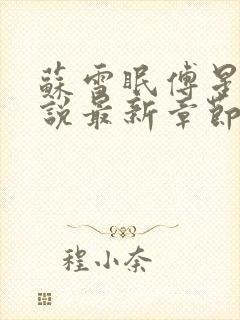 蘇雪眠傅星
說最新章節
程小奈